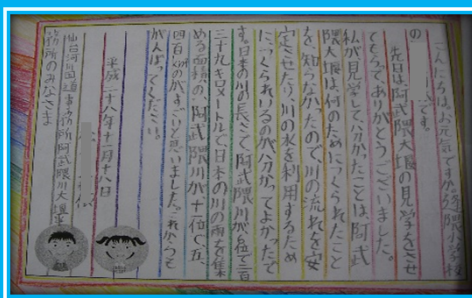 こんにちは。お元気ですか。逢隈小学校
の　　　です。
先日は、阿武隈大堰の見学をさせ
てもらってありがとうございました。
私が見学して、分かったことは、阿武
隈大堰は何のためにつくられたこと
を、知らなかったので、川の流れを安
定させたり、川の水を利用するため
につくられているのが、分かってよかったで
す。日本の川の長さで、阿武隈川が6位で二百
三十九キロメートルで、日本の川の雨を集
める面積の、阿武隈川が十一位で、五、
四百km²が、すごいと思いました。これからも
がんばってください。
平成二十八年十一月十八日
仙台河川国道事務所阿武隈川大堰管
務所のみなさま